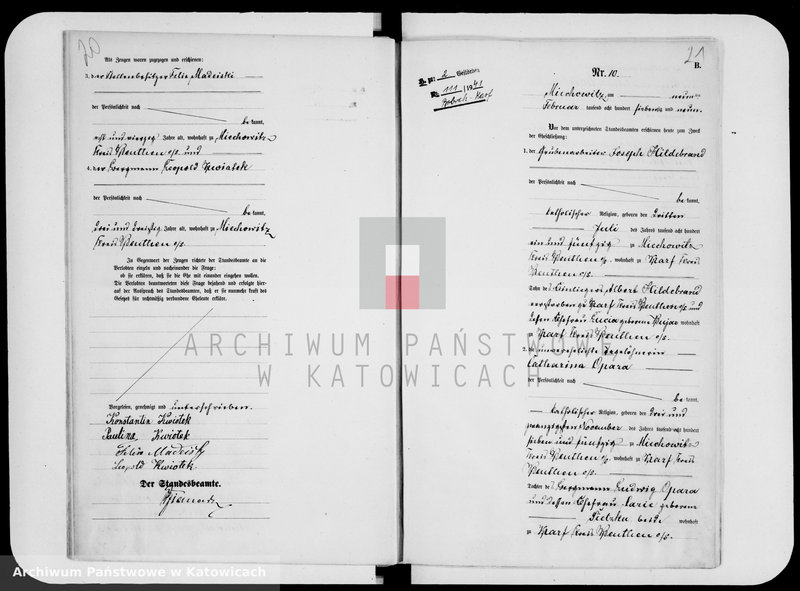 20
Als Zeugen waren zugezogen und erschienen:
3. der Stellenbesitzer Felix Madeiski
der Persönlichkeit nach
be kannt,
acht und vierzig Jahre alt, wohnhaft zu Miechowitz
Kreis Beuthen o/s. und
4. der Bergmann Leopold Kwiatek
der Persönlichkeit nach
be kannt,
drei und dreißig Jahre alt, wohnhaft zu Miechowitz
Kreis Beuthen o/s.
In Gegenwart der Zeugen richtete der Standesbeamte an die
Verlobten einzeln und nacheinander die Frage:
ob sie erklären, daß sie die Ehe mit einander eingehen wollen.
Die Verlobten beantworteten diese Frage bejahend und erfolgte hier-
auf der Ausspruch des Standesbeamten, daß er sie nunmehr kraft des
Gesetzes für rechtmäßig verbundene Eheleute erkläre.
Vorgelesen, genehmigt und unterschrieben.
Konstantin Kwiotek
Paulina Kwiotek
Felix Madeisk
Leopold Kwiotek.
Der Standesbeamte.
21
B.
Nr. 10.
2
111 / 1941
Bobrek-Karf
Miechowitz, am neun
Februar tausend acht hundert siebenzig und neun.
Vor dem unterzeichneten Standesbeamten erschienen heute zum Zweck
der Eheschließung:
1. der Grubenarbeiter Joseph Hildebrand
der Persönlichkeit nach
be kannt,
katholischer Religion, geboren den dritten
Juli des Jahres tausend acht hundert
ein und fünfzig zu Miechowitz
Kreis Beuthen o/s., wohnhaft zu Karf Kreis
Beuthen o/s.
Sohn des Einliegers Albert Hildebrand
verstorben zu Karf Kreis Beuthen o/s. und
dessen Ehefrau Lucia geborene Bujar wohnhaft
zu Karf Kreis Beuthen o/s.
2. die unverehelichte Tagelöhnerin
Catharina Opara
der Persönlichkeit nach
be kannt,
katholischer Religion, geboren den drei und
zwanzigsten November des Jahres tausend acht hundert
sieben und fünfzig zu Miechowitz
Kreis Beuthen o/s., wohnhaft zu Karf Kreis
Beuthen o/s.
Tochter des Bergmann Ludwig Opara
und dessen Ehefrau Marie geborene
Pietzka beide wohnhaft
zu Karf Kreis Beuthen o/s.
ARCHIWUM PAŃSTWOWE
W KATOWICACH
Archiwum Państwowe w Katowicach